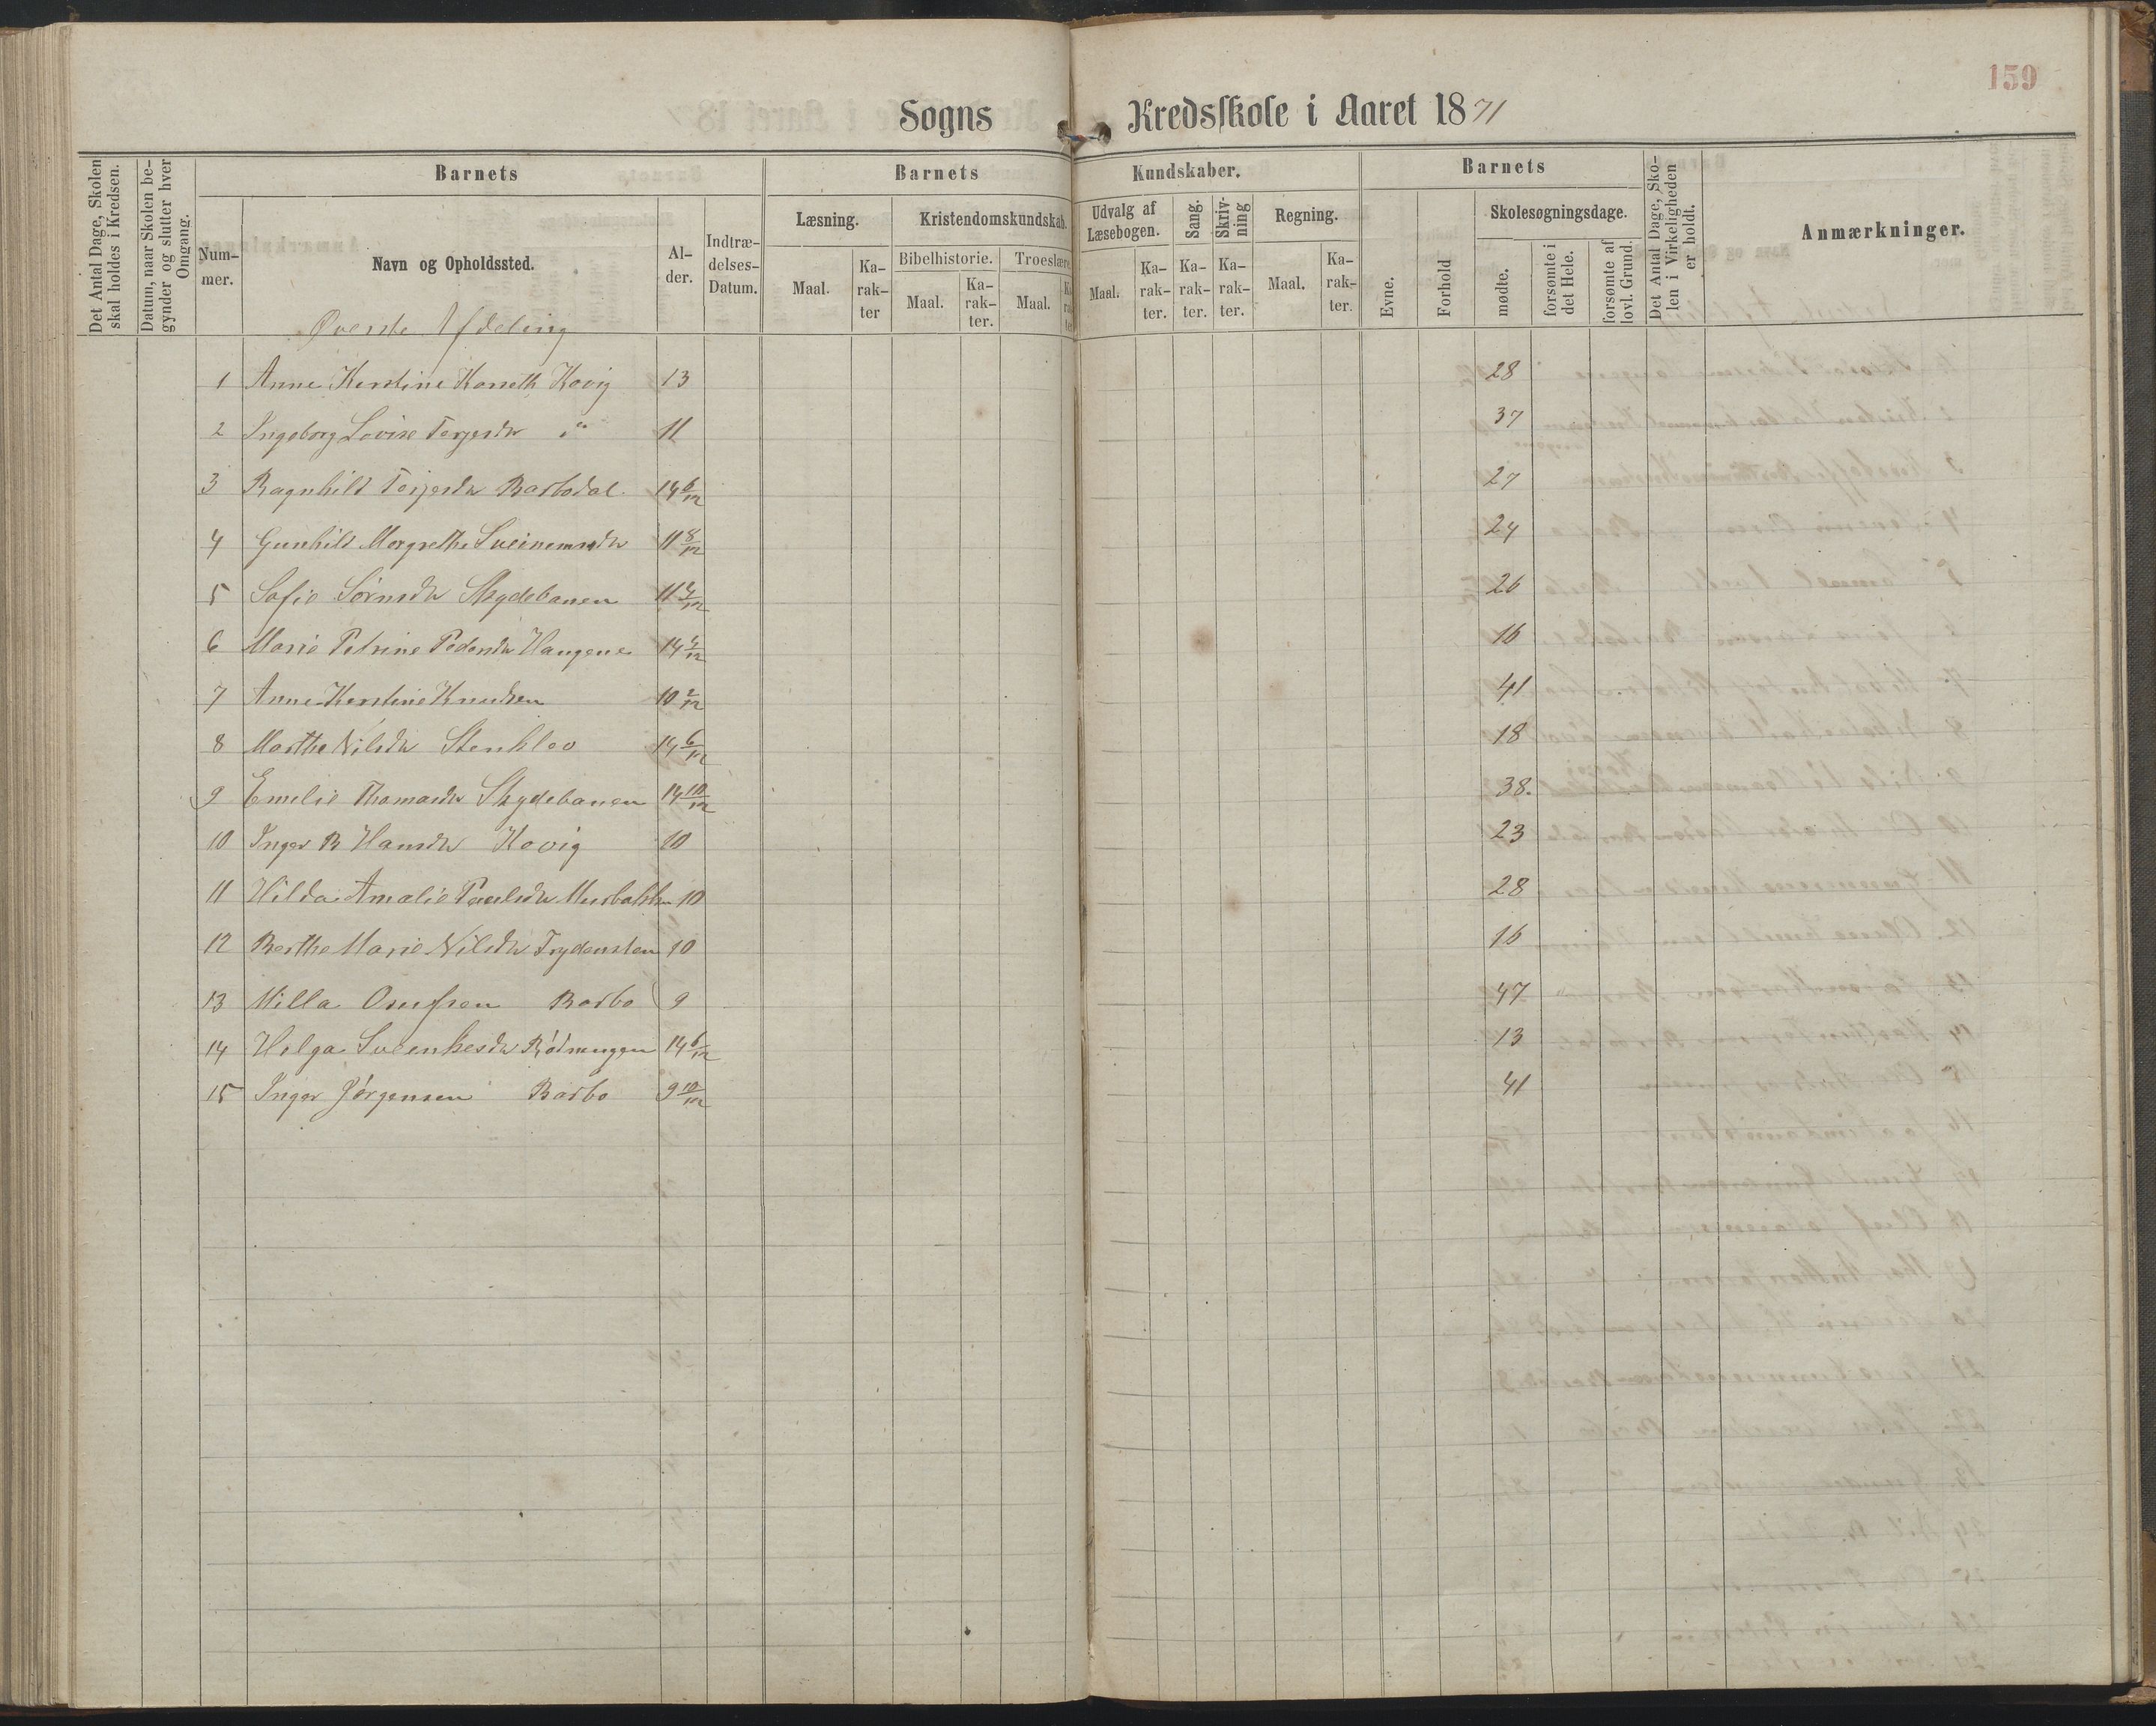 159
Sogns Kredsskole i Aaret 1871
Det Antal Dage, Skolen skal holdes i Kredsen.
Datum, naar Skolen begynder og slutter hver Omgang.
Barnets
Nummer.
Navn og Opholdssted.
Alder.
Indtrædelses-Datum.
Barnets Kundskaber.
Læsning.
Maal.
Karakter
Kristendomskundskab.
Bibelhistorie.
Maal.
Karakter.
Troeslære.
Maal.
Udvalg af Læsebogen.
Maal.
Karakter.
Sang.
Karakter.
Skrivning
Karakter.
Regning.
Maal.
Karakter.
Barnets
Evne.
Forhold
Skolesøgningsdage.
mødte.
forsømte i det Hele.
forsømte af lovl. Grund.
Det Antal Dage, Skolen i Virkeligheden er holdt.
Anmærkninger.
Øverste Afdeling
1 Anne Kerstine Kovig 13 28
2 Ingeborg Lovise Terjesdr " 11 37
3 Ragnhild Terjesdr Barbodal 14 6/12 27
4 Gunhild Margrethe 11 8/12 24
5 Sofie Sørnsdr Skydebanen 11 4/12 26
6 Marie Petrine Pedersdr Haugene 14 4/12 16
7 Anne Kerstine Knudsen 10 2/12 41
8 Marthe Nilsdr Stenklev 14 6/12 18
9 Emelie Thomasdr Skydebanen 14 10/12 38.
10 Inger B Hansdr Kovig 10 23
11 Hilda Amalie Paulsdr 10 28
12 Berthe Marie Nilsdr 10 16
13 Milla Barbo 9 47
14 Helga 14 6/12 13
15 Inger Jørgensen Barbo 9 10/12 41